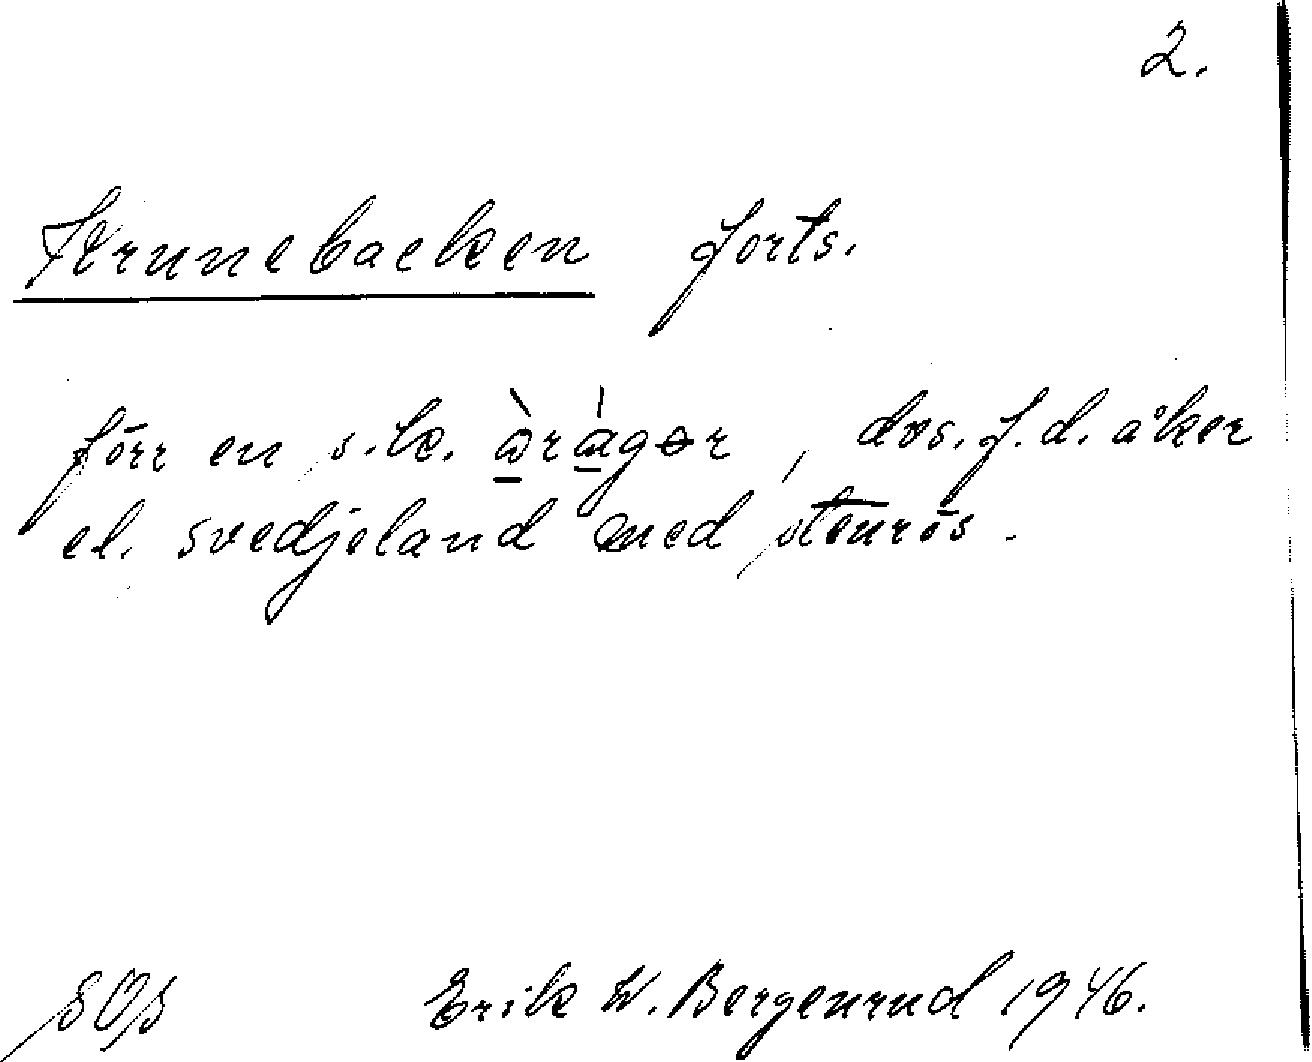 2.
Krunebacken forts.
förr en s.k. , dvs. f.d. åker
el. svedjeland med stenrös.
SOS Erik W. Bergenrud 1946.